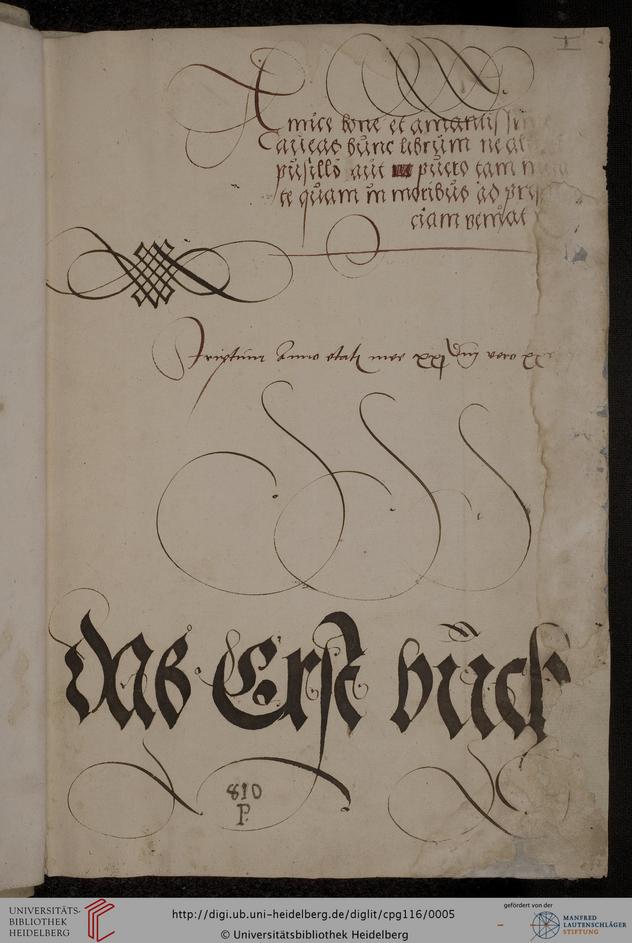 I
Amice bone et amantissi
caueas hunc librum ne al
pusillo aut puero tam
te quam in moribus ad pri
ciam veniat
Scriptum Anno etatis mee xxj dnj vero xx
das Erst buch
810
P.
UNIVERSITÄTS-
BIBLIOTHEK
HEIDELBERG
http://digi.ub.uni-heidelberg.de/diglit/cpg116/0005
© Universitätsbibliothek Heidelberg
gefördert von der
MANFRED
LAUTENSCHLÄGER
STIFTUNG